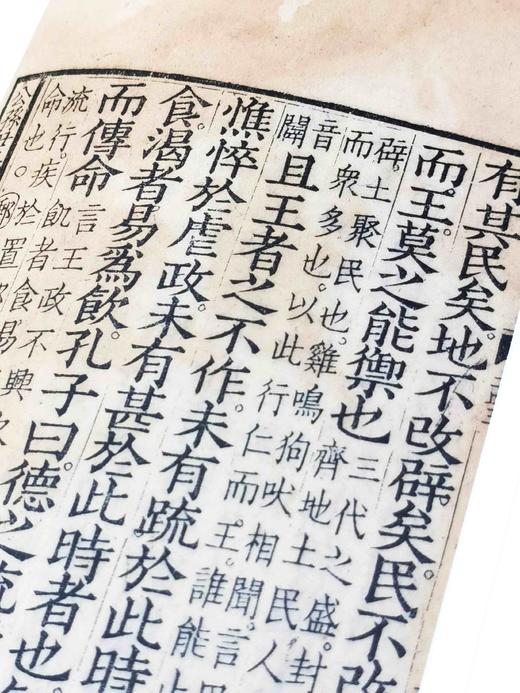 有其民矣。地不改辟矣。民不改
而王。莫之能禦也
三代之盛。封
齊地土民人
辟。土聚民也。雞鳴狗吠相聞。言
而衆多也。以此行仁而王。誰能
音
闢
且王者之不作。未有疏於此時
憔悴於虐政。未有甚於此時者也
食。渴者易為飲。孔子曰。德之流
而傳命
言王政不興
飢者食易
流行。疾於置
命也。
郵
公孫丑